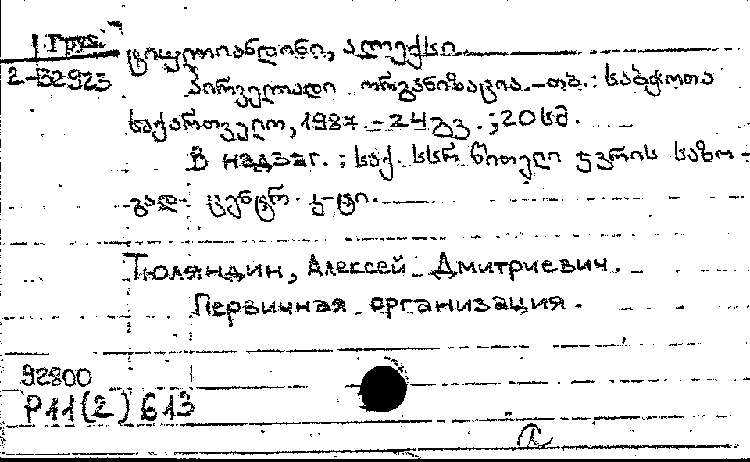 Груз.
2-32923
ტიულიანდინი, ალექსი
პირველადი ორგანიზაცია.-თბ.: საბჭოთა
საქართველო, 1987.-24გვ.; 20სმ.
В надзаг.: საქ. სსრ წითელი ჯვრის საზო-
გად. ცენტრ. კ-ტი.
Тюляндин, Алексей Дмитриевич.
Первичная организация.
92800
Р11(2)613
a